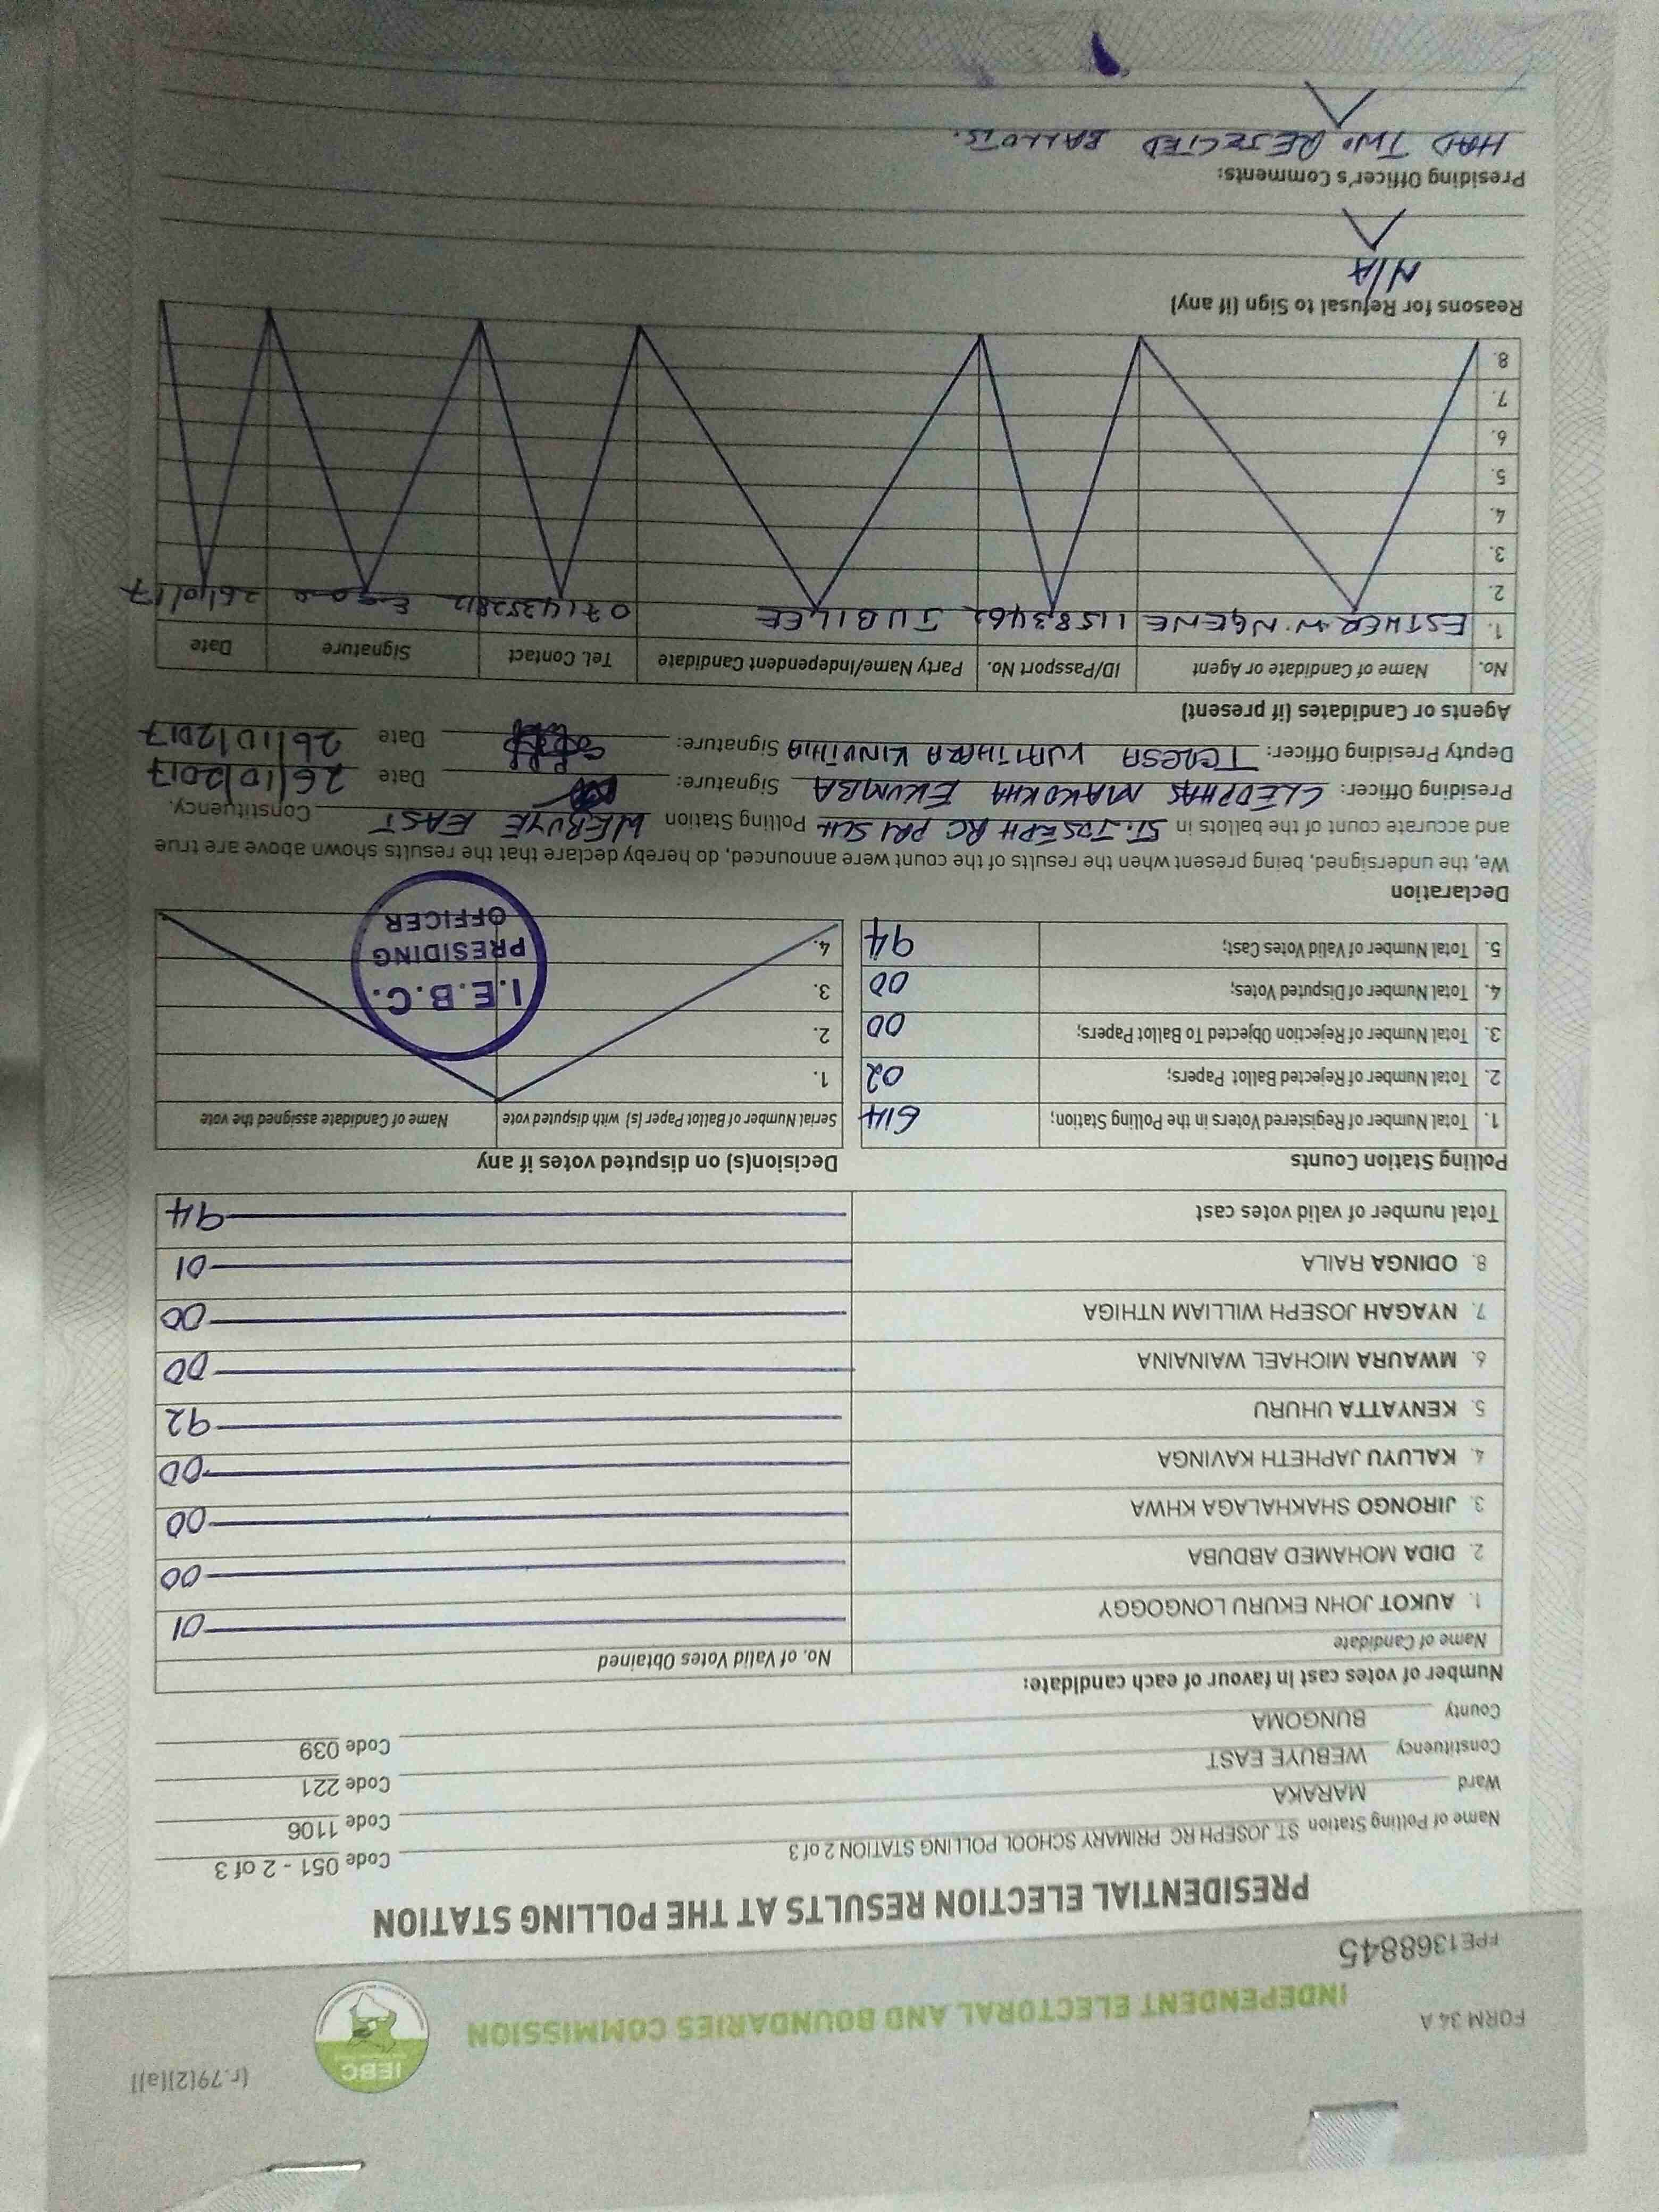 (r.79(2)(a))
FORM 34 A
IEBC
INDEPENDENT ELECTORAL AND BOUNDARIES COMMISSION
FPE1368845
PRESIDENTIAL ELECTION RESULTS AT THE POLLING STATION
Name of Polling Station ST. JOSEPH RC PRIMARY SCHOOL POLLING STATION 2 of 3 Code 051 - 2 of 3
Ward MARAKA Code 1106
Constituency WEBUYE EAST Code 221
County BUNGOMA Code 039
Number of votes cast in favour of each candidate:
Name of Candidate No. of Valid Votes Obtained
1. AUKOT JOHN EKURU LONGOGGY 01
2. DIDA MOHAMED ABDUBA 00
3. JIRONGO SHAKHALAGA KHWA 00
4. KALUYU JAPHETH KAVINGA 00
5. KENYATTA UHURU 92
6. MWAURA MICHAEL WAINAINA 00
7. NYAGAH JOSEPH WILLIAM NTHIGA 00
8. ODINGA RAILA 01
Total number of valid votes cast 94
Polling Station Counts Decision(s) on disputed votes if any
1. Total Number of Registered Voters in the Polling Station; 614 Serial Number of Ballot Paper (s) with disputed vote Name of Candidate assigned the vote
2. Total Number of Rejected Ballot Papers; 02 1.
3. Total Number of Rejection Objected To Ballot Papers; 00 2.
4. Total Number of Disputed Votes; 00 3.
5. Total Number of Valid Votes Cast; 94 4.
I.E.B.C.
PRESIDING
OFFICER
Declaration
We, the undersigned, being present when the results of the count were announced, do hereby declare that the results shown above are true
and accurate count of the ballots in ST. JOSEPH RC PRI SCH Polling Station WEBUYE EAST Constituency.
Presiding Officer: CLEOPHAS MAKOKHA EKUMBA Signature: Date 26/10/2017
Deputy Presiding Officer: TERESA Signature: Date 26/10/2017
Agents or Candidates (if present)
No. Name of Candidate or Agent ID/Passport No. Party Name/Independent Candidate Tel. Contact Signature Date
1. ESTHER W. NGENE 11583462 JUBILEE 0714352812 26/10/17
2.
3.
4.
5.
6.
7.
8.
Reasons for Refusal to Sign (if any)
N/A
Presiding Officer's Comments:
HAD TWO REJECTED BALLOTS.